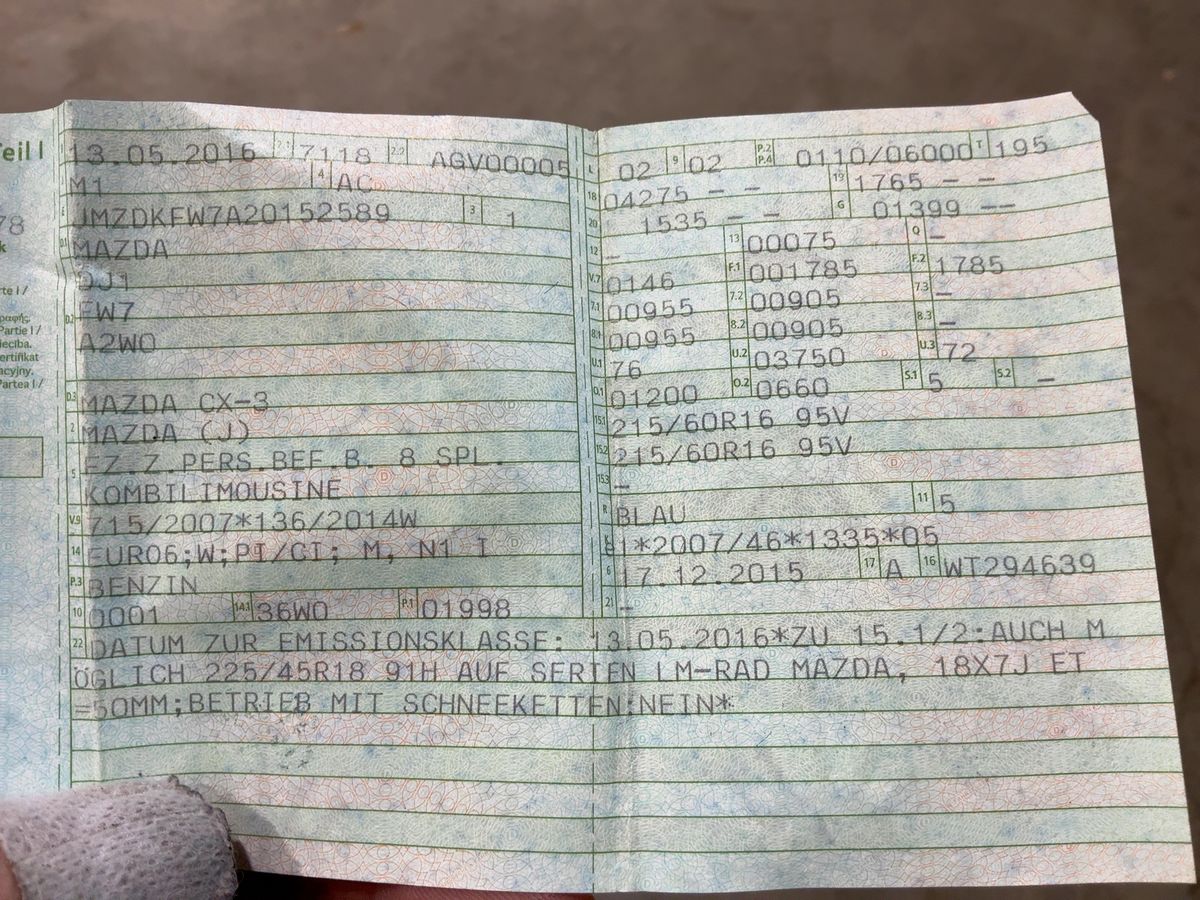 Teil I
13.05.2016 2.1 7118 2.2 AGV00005
M1 4 AC
JMZDKFW7A20152589 3 1
D.1 MAZDA
DJ1
D.2 FW7
A2W0
D.3 MAZDA CX-3
2 MAZDA (J)
5 FZ.Z.PERS.BEF.B. 8 SPL.
KOMBILIMOUSINE
V.9 715/2007*136/2014W
14 EURO6;W;PI/CI; M, N1 I
P.3 BENZIN
10 0001 14.1 36W0 P.1 01998
L 02 9 02 P.2 P.4 0110/06000 T 195
18 04275 – – 19 1765 – –
20 1535 – – G 01399 ––
12 – 13 00075 Q –
V.7 0146 F.1 001785 F.2 1785
7.1 00955 7.2 00905 7.3 –
8.1 00955 8.2 00905 8.3 –
U.1 76 U.2 03750 U.3 72
O.1 01200 O.2 0660 S.1 5 S.2 –
15.1 215/60R16 95V
15.2 215/60R16 95V
15.3 –
R BLAU 11 5
K e1*2007/46*1335*05
6 17.12.2015 17 A 16 WT294639
21 –
22 DATUM ZUR EMISSIONSKLASSE: 13.05.2016*ZU 15.1/2:AUCH M
ÖGLICH 225/45R18 91H AUF SERIEN LM-RAD MAZDA, 18X7J ET
=50MM;BETRIEB MIT SCHNEEKETTEN:NEIN*
78
k
rte I /
Partie I /
ertifikat
acyjny.
Partea I /